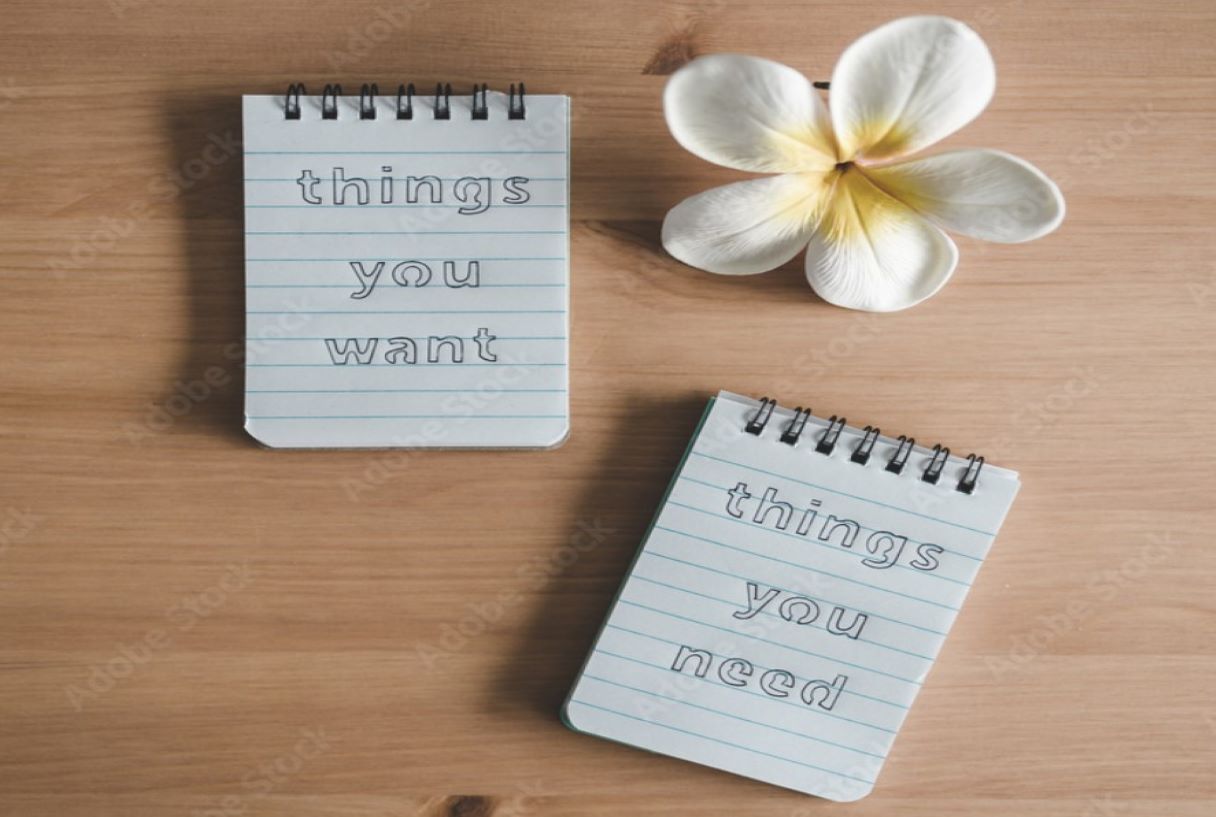 things
you
want
things
you
need
Adobe Stock